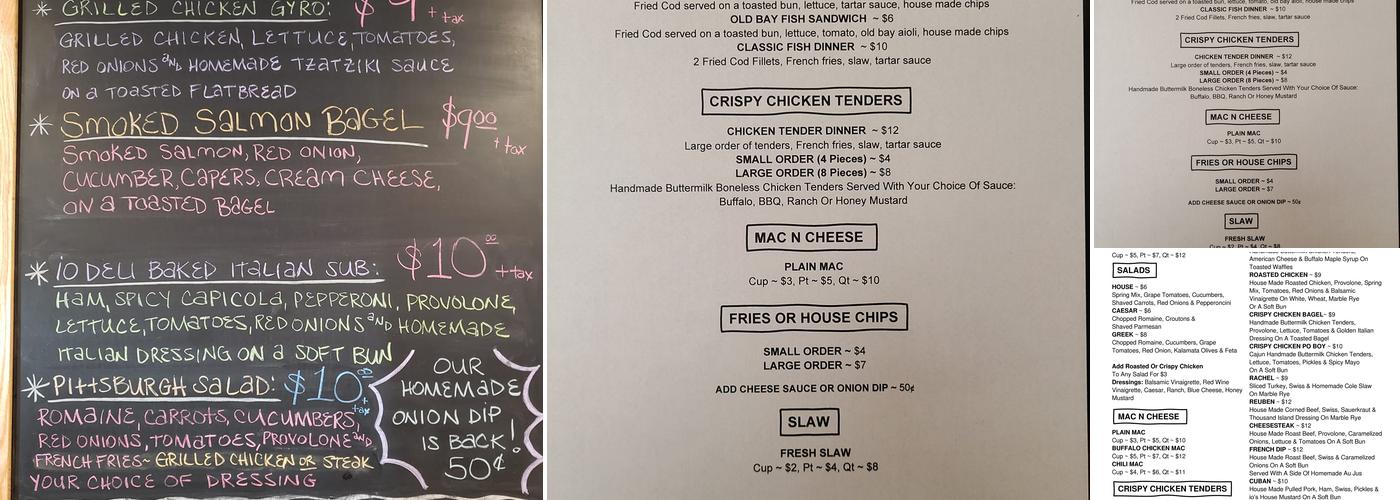 * GRILLED CHICKEN GYRO: $9 + tax
GRILLED CHICKEN, LETTUCE, TOMATOES,
RED ONIONS AND HOMEMADE TZATZIKI SAUCE
ON a TOASTED FLATBREAD
* SMOKED SALMON BAGEL $9.00 + tax
SMOKED SALMON, RED ONION,
CUCUMBER, CAPERS, CREAM CHEESE,
ON a TOASTED BAGEL
* iO DELI BAKED ITALIAN SUB: $10.00 + tax
HAM, SPICY CAPICOLA, PEPPERONI, PROVOLONE,
LETTUCE, TOMATOES, RED ONIONS AND HOMEMADE
ITALIAN DRESSING ON a SOFT BUN
* PITTSBURGH SALAD: $10.00 + tax
ROMAINE, CARROTS, CUCUMBERS,
RED ONIONS, TOMATOES, PROVOLONE AND
FRENCH FRIES~ GRILLED CHICKEN OR STEAK
YOUR CHOICE OF DRESSING
OUR
HOMEMADE
ONION DIP
IS BACK!
50¢
Fried Cod served on a toasted bun, lettuce, tartar sauce, house made chips
OLD BAY FISH SANDWICH ~ $6
Fried Cod served on a toasted bun, lettuce, tomato, old bay aioli, house made chips
CLASSIC FISH DINNER ~ $10
2 Fried Cod Fillets, French fries, slaw, tartar sauce
CRISPY CHICKEN TENDERS
CHICKEN TENDER DINNER ~ $12
Large order of tenders, French fries, slaw, tartar sauce
SMALL ORDER (4 Pieces) ~ $4
LARGE ORDER (8 Pieces) ~ $8
Handmade Buttermilk Boneless Chicken Tenders Served With Your Choice Of Sauce:
Buffalo, BBQ, Ranch Or Honey Mustard
MAC N CHEESE
PLAIN MAC
Cup ~ $3, Pt ~ $5, Qt ~ $10
FRIES OR HOUSE CHIPS
SMALL ORDER ~ $4
LARGE ORDER ~ $7
ADD CHEESE SAUCE OR ONION DIP ~ 50¢
SLAW
FRESH SLAW
Cup ~ $2, Pt ~ $4, Qt ~ $8
Fried Cod served on a toasted bun, lettuce, tomato, old bay aioli, house made chips
CLASSIC FISH DINNER ~ $10
2 Fried Cod Fillets, French fries, slaw, tartar sauce
CRISPY CHICKEN TENDERS
CHICKEN TENDER DINNER ~ $12
Large order of tenders, French fries, slaw, tartar sauce
SMALL ORDER (4 Pieces) ~ $4
LARGE ORDER (8 Pieces) ~ $8
Handmade Buttermilk Boneless Chicken Tenders Served With Your Choice Of Sauce:
Buffalo, BBQ, Ranch Or Honey Mustard
MAC N CHEESE
PLAIN MAC
Cup ~ $3, Pt ~ $5, Qt ~ $10
FRIES OR HOUSE CHIPS
SMALL ORDER ~ $4
LARGE ORDER ~ $7
ADD CHEESE SAUCE OR ONION DIP ~ 50¢
SLAW
FRESH SLAW
Cup ~ $2, Pt ~ $4, Qt ~ $8
Cup ~ $5, Pt ~ $7, Qt ~ $12
SALADS
HOUSE ~ $6
Spring Mix, Grape Tomatoes, Cucumbers,
Shaved Carrots, Red Onions & Pepperoncini
CAESAR ~ $6
Chopped Romaine, Croutons &
Shaved Parmesan
GREEK ~ $8
Chopped Romaine, Cucumbers, Grape
Tomatoes, Red Onion, Kalamata Olives & Feta
Add Roasted Or Crispy Chicken
To Any Salad For $3
Dressings: Balsamic Vinaigrette, Red Wine
Vinaigrette, Caesar, Ranch, Blue Cheese, Honey
Mustard
MAC N CHEESE
PLAIN MAC
Cup ~ $3, Pt ~ $5, Qt ~ $10
BUFFALO CHICKEN MAC
Cup ~ $5, Pt ~ $7, Qt ~ $12
CHILI MAC
Cup ~ $4, Pt ~ $6, Qt ~ $11
CRISPY CHICKEN TENDERS
American Cheese & Buffalo Maple Syrup On
Toasted Waffles
ROASTED CHICKEN ~ $9
House Made Roasted Chicken, Provolone, Spring
Mix, Tomatoes, Red Onions & Balsamic
Vinaigrette On White, Wheat, Marble Rye
Or A Soft Bun
CRISPY CHICKEN BAGEL~ $9
Handmade Buttermilk Chicken Tenders,
Provolone, Lettuce, Tomatoes & Golden Italian
Dressing On A Toasted Bagel
CRISPY CHICKEN PO BOY ~ $10
Cajun Handmade Buttermilk Chicken Tenders,
Lettuce, Tomatoes, Pickles & Spicy Mayo
On A Soft Bun
RACHEL ~ $9
Sliced Turkey, Swiss & Homemade Cole Slaw
On Marble Rye
REUBEN ~ $12
House Made Corned Beef, Swiss, Sauerkraut &
Thousand Island Dressing On Marble Rye
CHEESESTEAK ~ $12
House Made Roast Beef, Provolone, Caramelized
Onions, Lettuce & Tomatoes On A Soft Bun
FRENCH DIP ~ $12
House Made Roast Beef, Swiss & Caramelized
Onions On A Soft Bun
Served With A Side Of Homemade Au Jus
CUBAN ~ $10
House Made Pulled Pork, Ham, Swiss, Pickles &
io's House Mustard On A Soft Bun